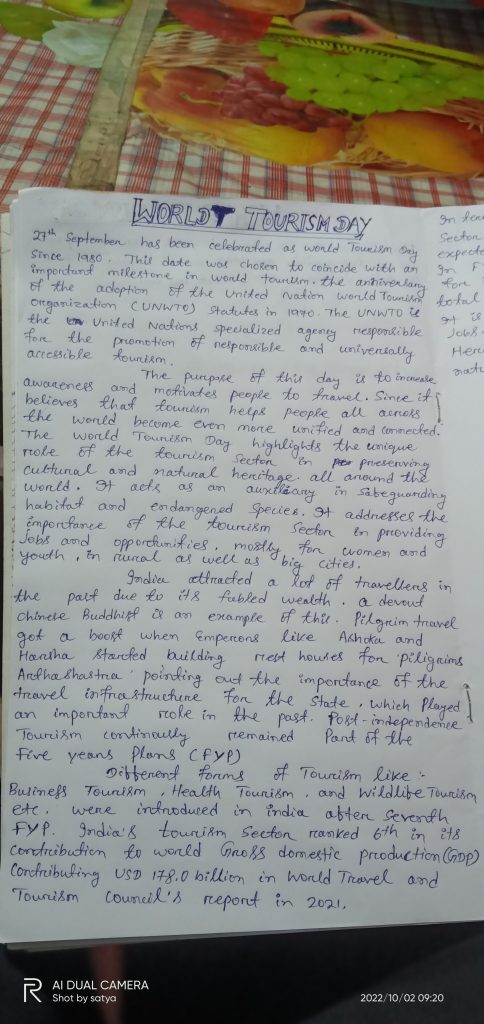 WORLD TOURISM DAY
27th September has been celebrated as world Tourism Day
Since 1980. This date was chosen to coincide with an
important milestone in world tourism. the anniversary
of the adoption of the United Nation World Tourism
Organization (UNWTO) Statutes in 1970. The UNWTO is
the United Nations specialized agency responsible
for the promotion of responsible and universally
accessible tourism.
The purpose of this day is to increase
awareness and motivates people to travel. Since it
believes that tourism helps people all across
the world become even more unified and connected.
The World Tourism Day highlights the unique
role of the tourism Sector in preserving
cultural and natural heritage. all around the
world. It acts as an auxiliary in safeguarding
habitat and endangered species. It addresses the
importance of the tourism Sector in providing
Jobs and opportunities, mostly for women and
youth, in rural as well as big cities.
India attracted a lot of travellers in
the past due to its fabled wealth. a devout
Chinese Buddhist is an example of this. Pilgrim travel
got a boost when Emperors like Ashoka and
Harsha Started building rest houses for Piligrims
Ardhashastra pointing out the importance of the
travel infrastructure for the State, which Played
an important role in the past. Post-independence
Tourism continously remained Part of the
Five years Plans (FYP)
Different forms of Tourism like :-
Business Tourism, Health Tourism, and Wildlife Tourism
etc. were introduced in india after Seventh
FYP. India's tourism Sector ranked 6th in its
contribution to world Gross domestic production (GDP)
Contributing USD 178.0 billion in World Travel and
Tourism Council's report in 2021.
Sector
expecte
In F
for
total
It is
Jobs
Here
natu
AI DUAL CAMERA
Shot by satya
2022/10/02 09:20